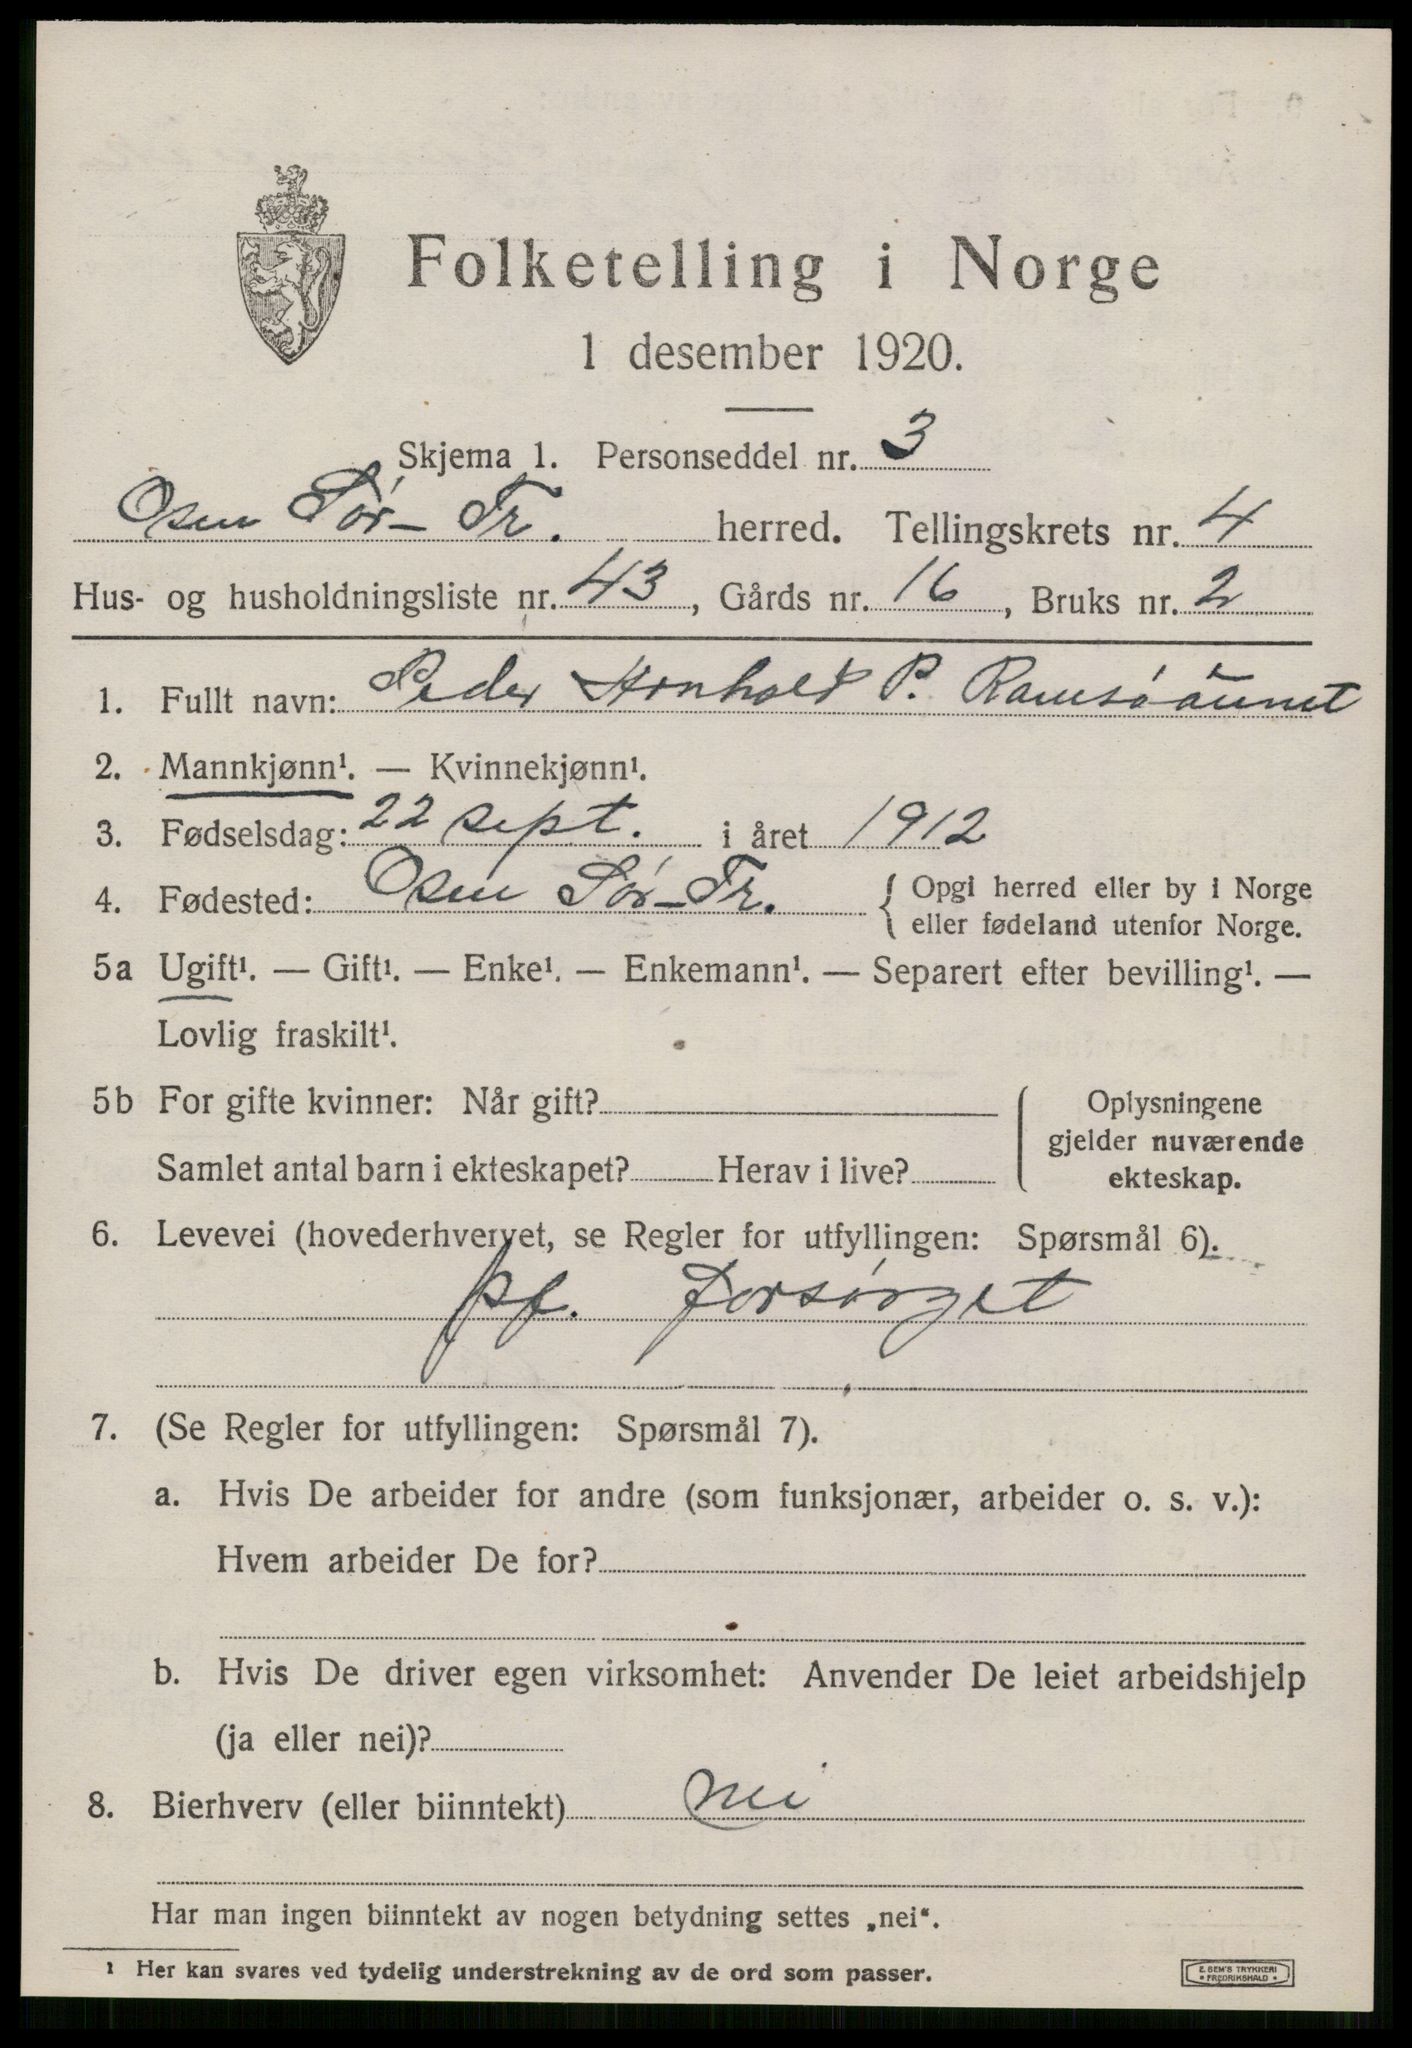 Folketelling i Norge
1 desember 1920.
Skjema 1. Personseddel nr. 3
Osen Sør-Tr. herred. Tellingskrets nr. 4
Hus- og husholdningsliste nr. 43, Gårds nr. 16, Bruks nr. 2
1. Fullt navn: Peder P. Ramsøaunet
2. Mannkjønn¹. — Kvinnekjønn¹.
3. Fødselsdag: 22 sept. i året 1912
4. Fødested: Osen Sør-Tr. { Opgi herred eller by i Norge
eller fødeland utenfor Norge.
5a Ugift¹. — Gift¹. — Enke¹. — Enkemann¹. — Separert efter bevilling¹. —
Lovlig fraskilt¹.
5b For gifte kvinner: Når gift?
Samlet antal barn i ekteskapet? Herav i live?
Oplysningene
gjelder nuværende
ekteskap.
6. Levevei (hovederhvervet, se Regler for utfyllingen: Spørsmål 6).
pf. forsørget
7. (Se Regler for utfyllingen: Spørsmål 7).
a. Hvis De arbeider for andre (som funksjonær, arbeider o. s. v.):
Hvem arbeider De for?
b. Hvis De driver egen virksomhet: Anvender De leiet arbeidshjelp
(ja eller nei)?
8. Bierhverv (eller biinntekt) nei
Har man ingen biinntekt av nogen betydning settes „nei“.
1 Her kan svares ved tydelig understrekning av de ord som passer.
E. SEM'S TRYKKERI
• FREDRIKSHALD •